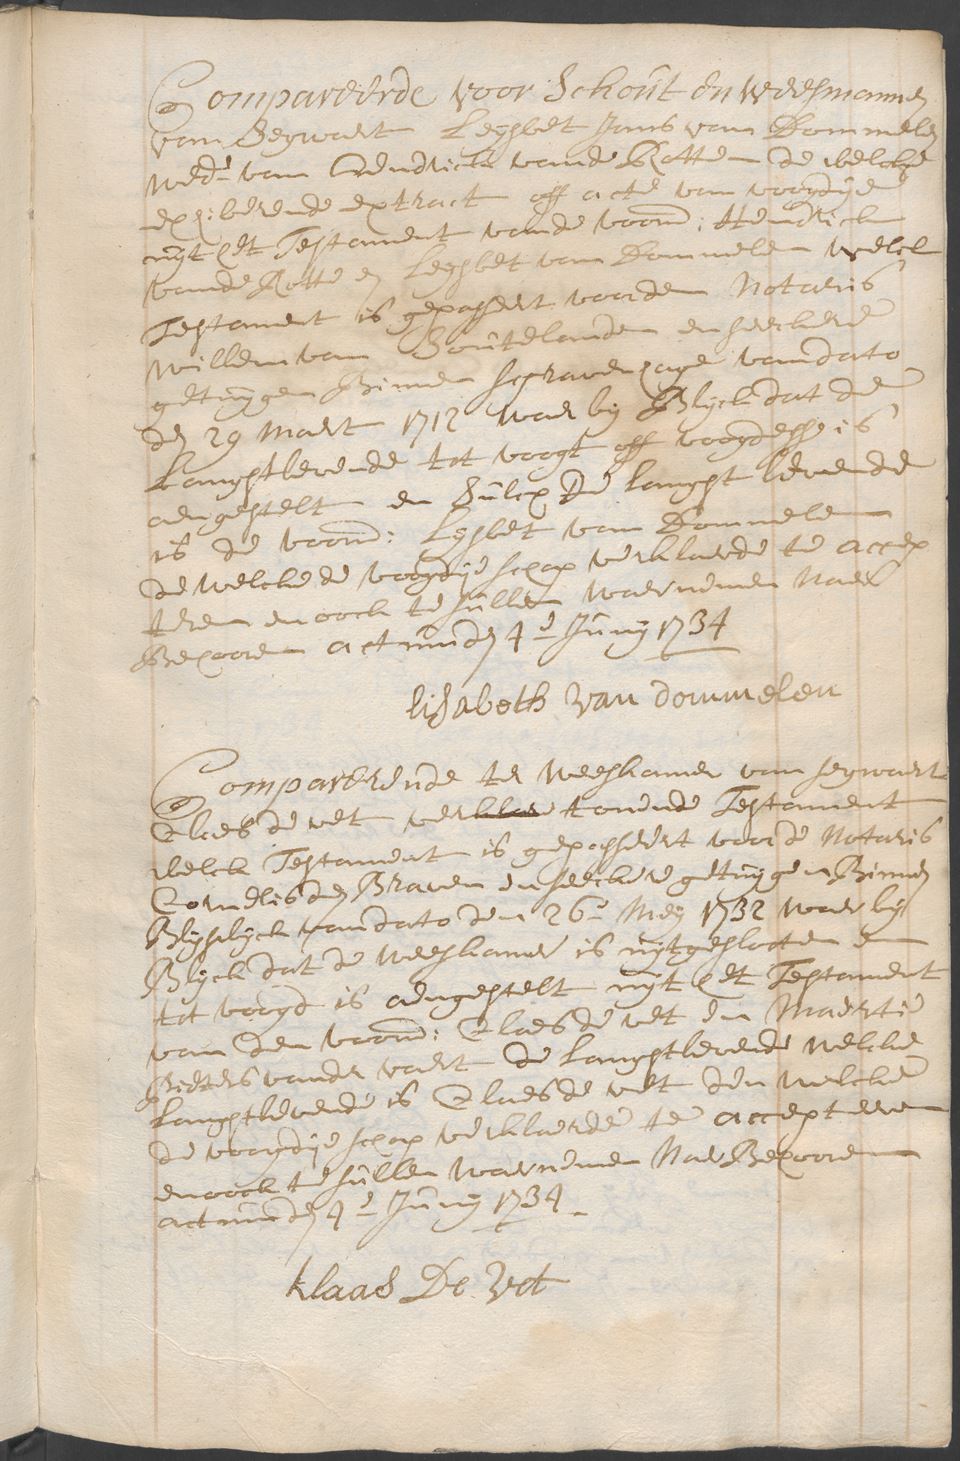 Compareerde voor Schout en Weesmannen
van Segwaert Leysbet Jans van Dommelen
Wede van Hendrick vande Rotte de welcke
exhiberende extract off acte van voogdije
uyt het Testament vande voorn: Hendrick
vande Rotte en Leysbet van Dommelen welck
Testament is gepasseert voor den Notaris
Willem van Soutelande en seeckere
getuygen Binnen sGravenhage van dato
den 29 Maert 1712 waer by Blyck dat de
Langstlevende tot voogt off voogdesse is
aengestelt en Sulcx De langst levende
is de voorn: Leysbet van Dommelen
de welcke de voogdijeschap verklaerde te accep
teren en oock te sullen waernemen Naer
Behooren actum den 4e Juny 1734
lisabeth van dommelen
Compareerde ter Weeskamer van segwaert
Claes de vet ver tonende Testament
welck Testament is gepasseert voor de Notaris
Cornelis den Braven en seeckere getuygen Binnen
Blyswyck van dato den 26e Mey 1732 waer by
Blyck dat de weeskamer is uytgeslooten en
tot voogd is aengestelt uyt het Testament
van den voorn: Claes de vet en Maertie
Pieters vander vaert de Langstlevende welcke
Langstlevende is Claes de vet den welcken
de voogdijeschap verklaerde te accepteeren
en oock te sullen waernemen Naer Behooren
actum den 4e Juny 1734
klaas De Vet